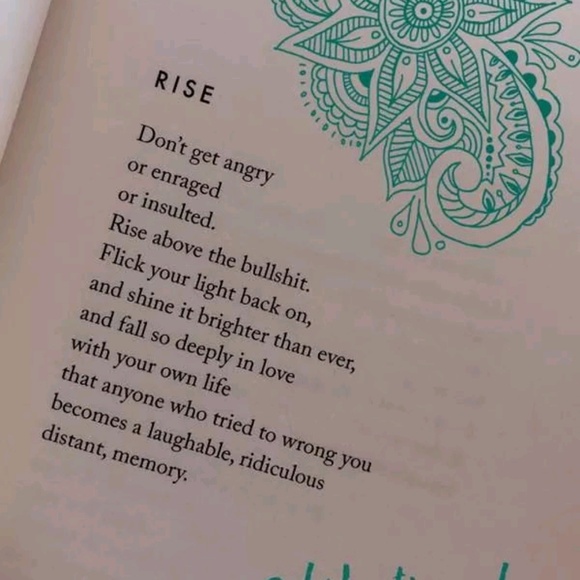 RISE
Don't get angry
or enraged
or insulted.
Rise above the bullshit.
Flick your light back on,
and shine it brighter than ever,
and fall so deeply in love
with your own life
that anyone who tried to wrong you
becomes a laughable, ridiculous
distant, memory.